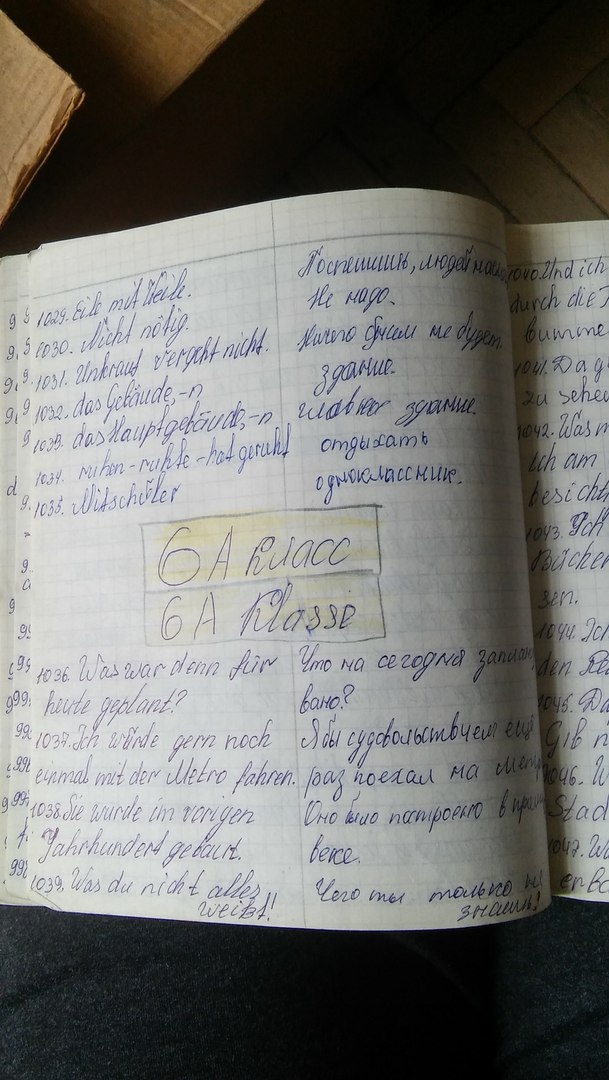 1029. Eile mit Weile.
Поспешишь, людей
1030. Nicht nötig.
Не надо.
1031. Unkraut vergeht nicht.
Ничего с ним не будет.
1032. das Gebäude, -n
здание.
1033. das Hauptgebäude, -n
главное здание.
1034. ruhen - ruhte - hat geruht
отдыхать
1035. Mitschüler
одноклассник.
6 А класс
6 A Klasse
1036. Was war denn für
Что на сегодня заплан
heute geplant?
вано?
1037. Ich würde gern noch
Я бы с удовольствием ещё
einmal mit der Metro fahren.
раз поехал на мет
1038. Sie wurde im vorigen
Оно было построено в
Jahrhundert gebaut.
веке.
1039. Was du nicht alles
Чего ты только не
weißt!
знаешь!
1040. Und ich
durch die
bumme
1041. Da g
zu sehe
1042. Was m
ich am
besicht
1043.
Bücher
sen.
1044. Ich
den Re
1045. Da
Gib n
1046. W
Stad
1047. Wa